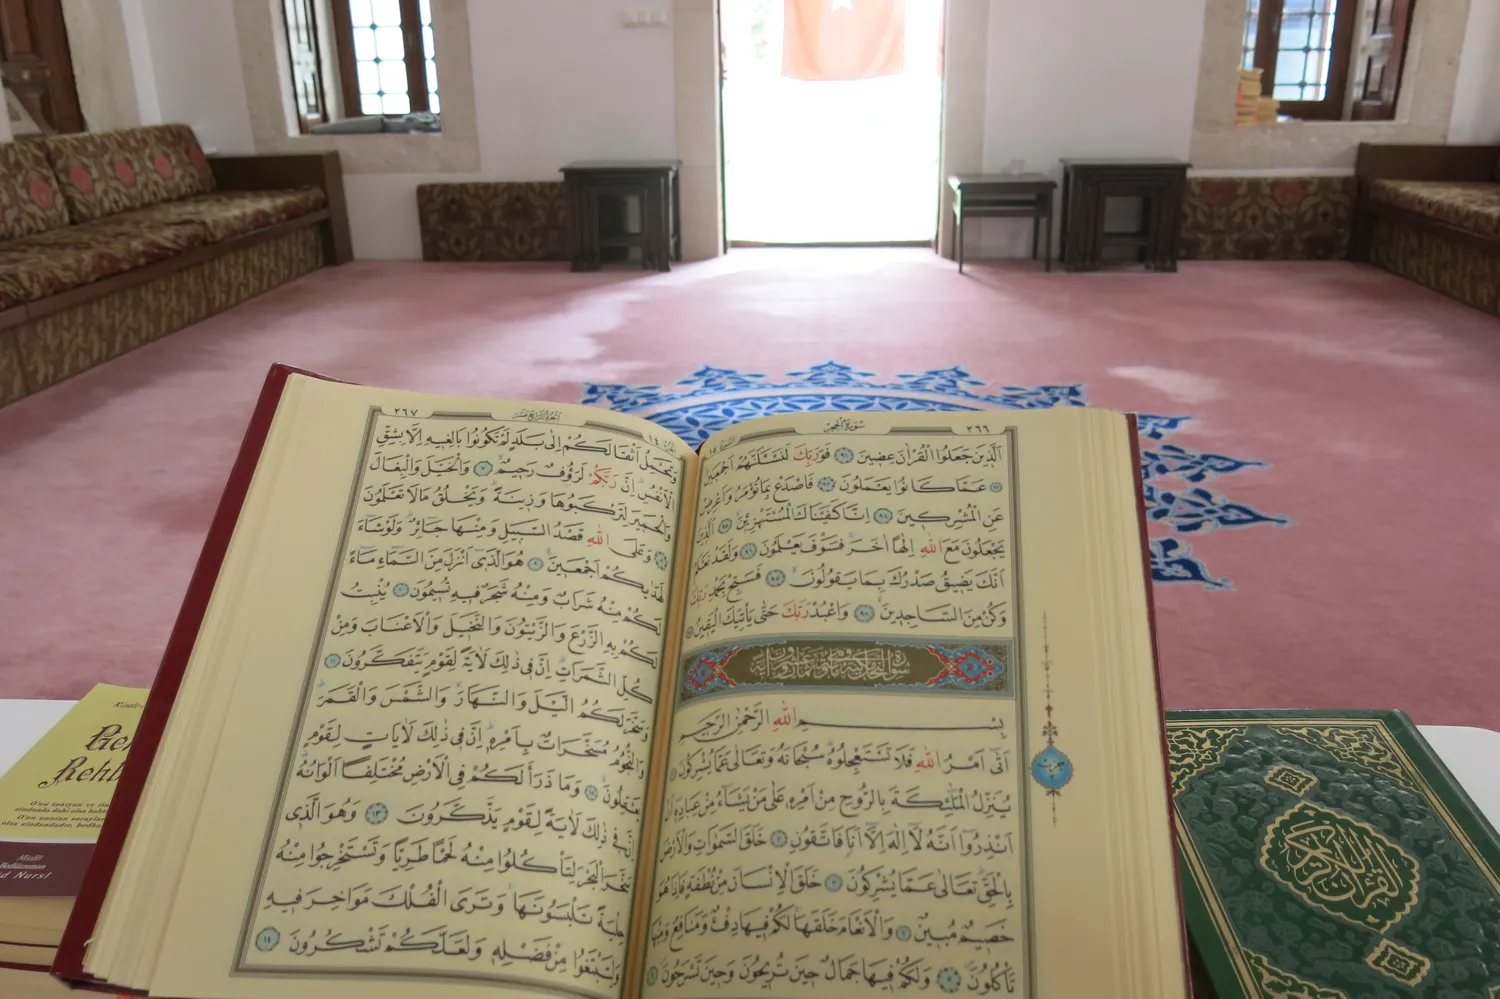 ٢٦٦ سُورَةُ الْحِجْرِ
اَلَّذٖينَ جَعَلُوا الْقُرْاٰنَ عِضٖينَ ﴿٩١﴾ فَوَرَبِّكَ لَنَسْـَٔلَنَّهُمْ اَجْمَعٖينَ
﴿٩٢﴾ عَمَّا كَانُوا يَعْمَلُونَ ﴿٩٣﴾ فَاصْدَعْ بِمَا تُؤْمَرُ وَاَعْرِضْ
عَنِ الْمُشْرِكٖينَ ﴿٩٤﴾ اِنَّا كَفَيْنَاكَ الْمُسْتَهْزِءٖينَ ﴿٩٥﴾ اَلَّذٖينَ
يَجْعَلُونَ مَعَ اللّٰهِ اِلٰهًا اٰخَرَ فَسَوْفَ يَعْلَمُونَ ﴿٩٦﴾ وَلَقَدْ نَعْلَمُ
اَنَّكَ يَضٖيقُ صَدْرُكَ بِمَا يَقُولُونَ ﴿٩٧﴾ فَسَبِّحْ بِحَمْدِ رَبِّكَ
وَكُنْ مِنَ السَّاجِدٖينَ ﴿٩٨﴾ وَاعْبُدْ رَبَّكَ حَتّٰى يَاْتِيَكَ الْيَقٖينُ ﴿٩٩﴾
سُورَةُ النَّحْلِ مَكِّيَّةٌ وَهِيَ مِائَةٌ وَثَمَانٌ وَعِشْرُونَ اٰيَةً
بِسْمِ اللّٰهِ الرَّحْمٰنِ الرَّحٖيمِ
اَتٰٓى اَمْرُ اللّٰهِ فَلَا تَسْتَعْجِلُوهُ سُبْحَانَهُ وَتَعَالٰى عَمَّا يُشْرِكُونَ ﴿١﴾
يُنَزِّلُ الْمَلٰٓئِكَةَ بِالرُّوحِ مِنْ اَمْرِهٖ عَلٰى مَنْ يَشَٓاءُ مِنْ عِبَادِهٖٓ اَنْ
اَنْذِرُٓوا اَنَّهُ لَٓا اِلٰهَ اِلَّٓا اَنَا۬ فَاتَّقُونِ ﴿٢﴾ خَلَقَ السَّمٰوَاتِ وَالْاَرْضَ
بِالْحَقِّ تَعَالٰى عَمَّا يُشْرِكُونَ ﴿٣﴾ خَلَقَ الْاِنْسَانَ مِنْ نُطْفَةٍ فَاِذَا هُوَ
خَصٖيمٌ مُبٖينٌ ﴿٤﴾ وَالْاَنْعَامَ خَلَقَهَا لَكُمْ فٖيهَا دِفْءٌ وَمَنَافِعُ وَمِنْهَا
تَاْكُلُونَ ﴿٥﴾ وَلَكُمْ فٖيهَا جَمَالٌ حٖينَ تُرٖيحُونَ وَحٖينَ تَسْرَحُونَ ﴿٦﴾
اَلْجُزْءُ الرَّابِعَ عَشَرَ ٢٦٧
وَتَحْمِلُ اَثْقَالَكُمْ اِلٰى بَلَدٍ لَمْ تَكُونُوا بَالِغٖيهِ اِلَّا بِشِقِّ
الْاَنْفُسِ اِنَّ رَبَّكُمْ لَرَؤُفٌ رَحٖيمٌ ﴿٧﴾ وَالْخَيْلَ وَالْبِغَالَ
وَالْحَمٖيرَ لِتَرْكَبُوهَا وَزٖينَةً وَيَخْلُقُ مَا لَا تَعْلَمُونَ
﴿٨﴾ وَعَلَى اللّٰهِ قَصْدُ السَّبٖيلِ وَمِنْهَا جَٓائِرٌ وَلَوْ شَٓاءَ
لَهَدٰيكُمْ اَجْمَعٖينَ ﴿٩﴾ هُوَ الَّذٖٓي اَنْزَلَ مِنَ السَّمَٓاءِ مَٓاءً
لَكُمْ مِنْهُ شَرَابٌ وَمِنْهُ شَجَرٌ فٖيهِ تُسٖيمُونَ ﴿١٠﴾ يُنْبِتُ
لَكُمْ بِهِ الزَّرْعَ وَالزَّيْتُونَ وَالنَّخٖيلَ وَالْاَعْنَابَ وَمِنْ
كُلِّ الثَّمَرَاتِ اِنَّ فٖي ذٰلِكَ لَاٰيَةً لِقَوْمٍ يَتَفَكَّرُونَ ﴿١١﴾
وَسَخَّرَ لَكُمُ الَّيْلَ وَالنَّهَارَ وَالشَّمْسَ وَالْقَمَرَ
وَالنُّجُومُ مُسَخَّرَاتٌ بِاَمْرِهٖ اِنَّ فٖي ذٰلِكَ لَاٰيَاتٍ لِقَوْمٍ
يَعْقِلُونَ ﴿١٢﴾ وَمَا ذَرَاَ لَكُمْ فِي الْاَرْضِ مُخْتَلِفًا اَلْوَانُهُ
اِنَّ فٖي ذٰلِكَ لَاٰيَةً لِقَوْمٍ يَذَّكَّرُونَ ﴿١٣﴾ وَهُوَ الَّذٖي
سَخَّرَ الْبَحْرَ لِتَاْكُلُوا مِنْهُ لَحْمًا طَرِيًّا وَتَسْتَخْرِجُوا مِنْهُ
حِلْيَةً تَلْبَسُونَهَا وَتَرَى الْفُلْكَ مَوَاخِرَ فٖيهِ
وَلِتَبْتَغُوا مِنْ فَضْلِهٖ وَلَعَلَّكُمْ تَشْكُرُونَ ﴿١٤﴾
القرآن الكريم